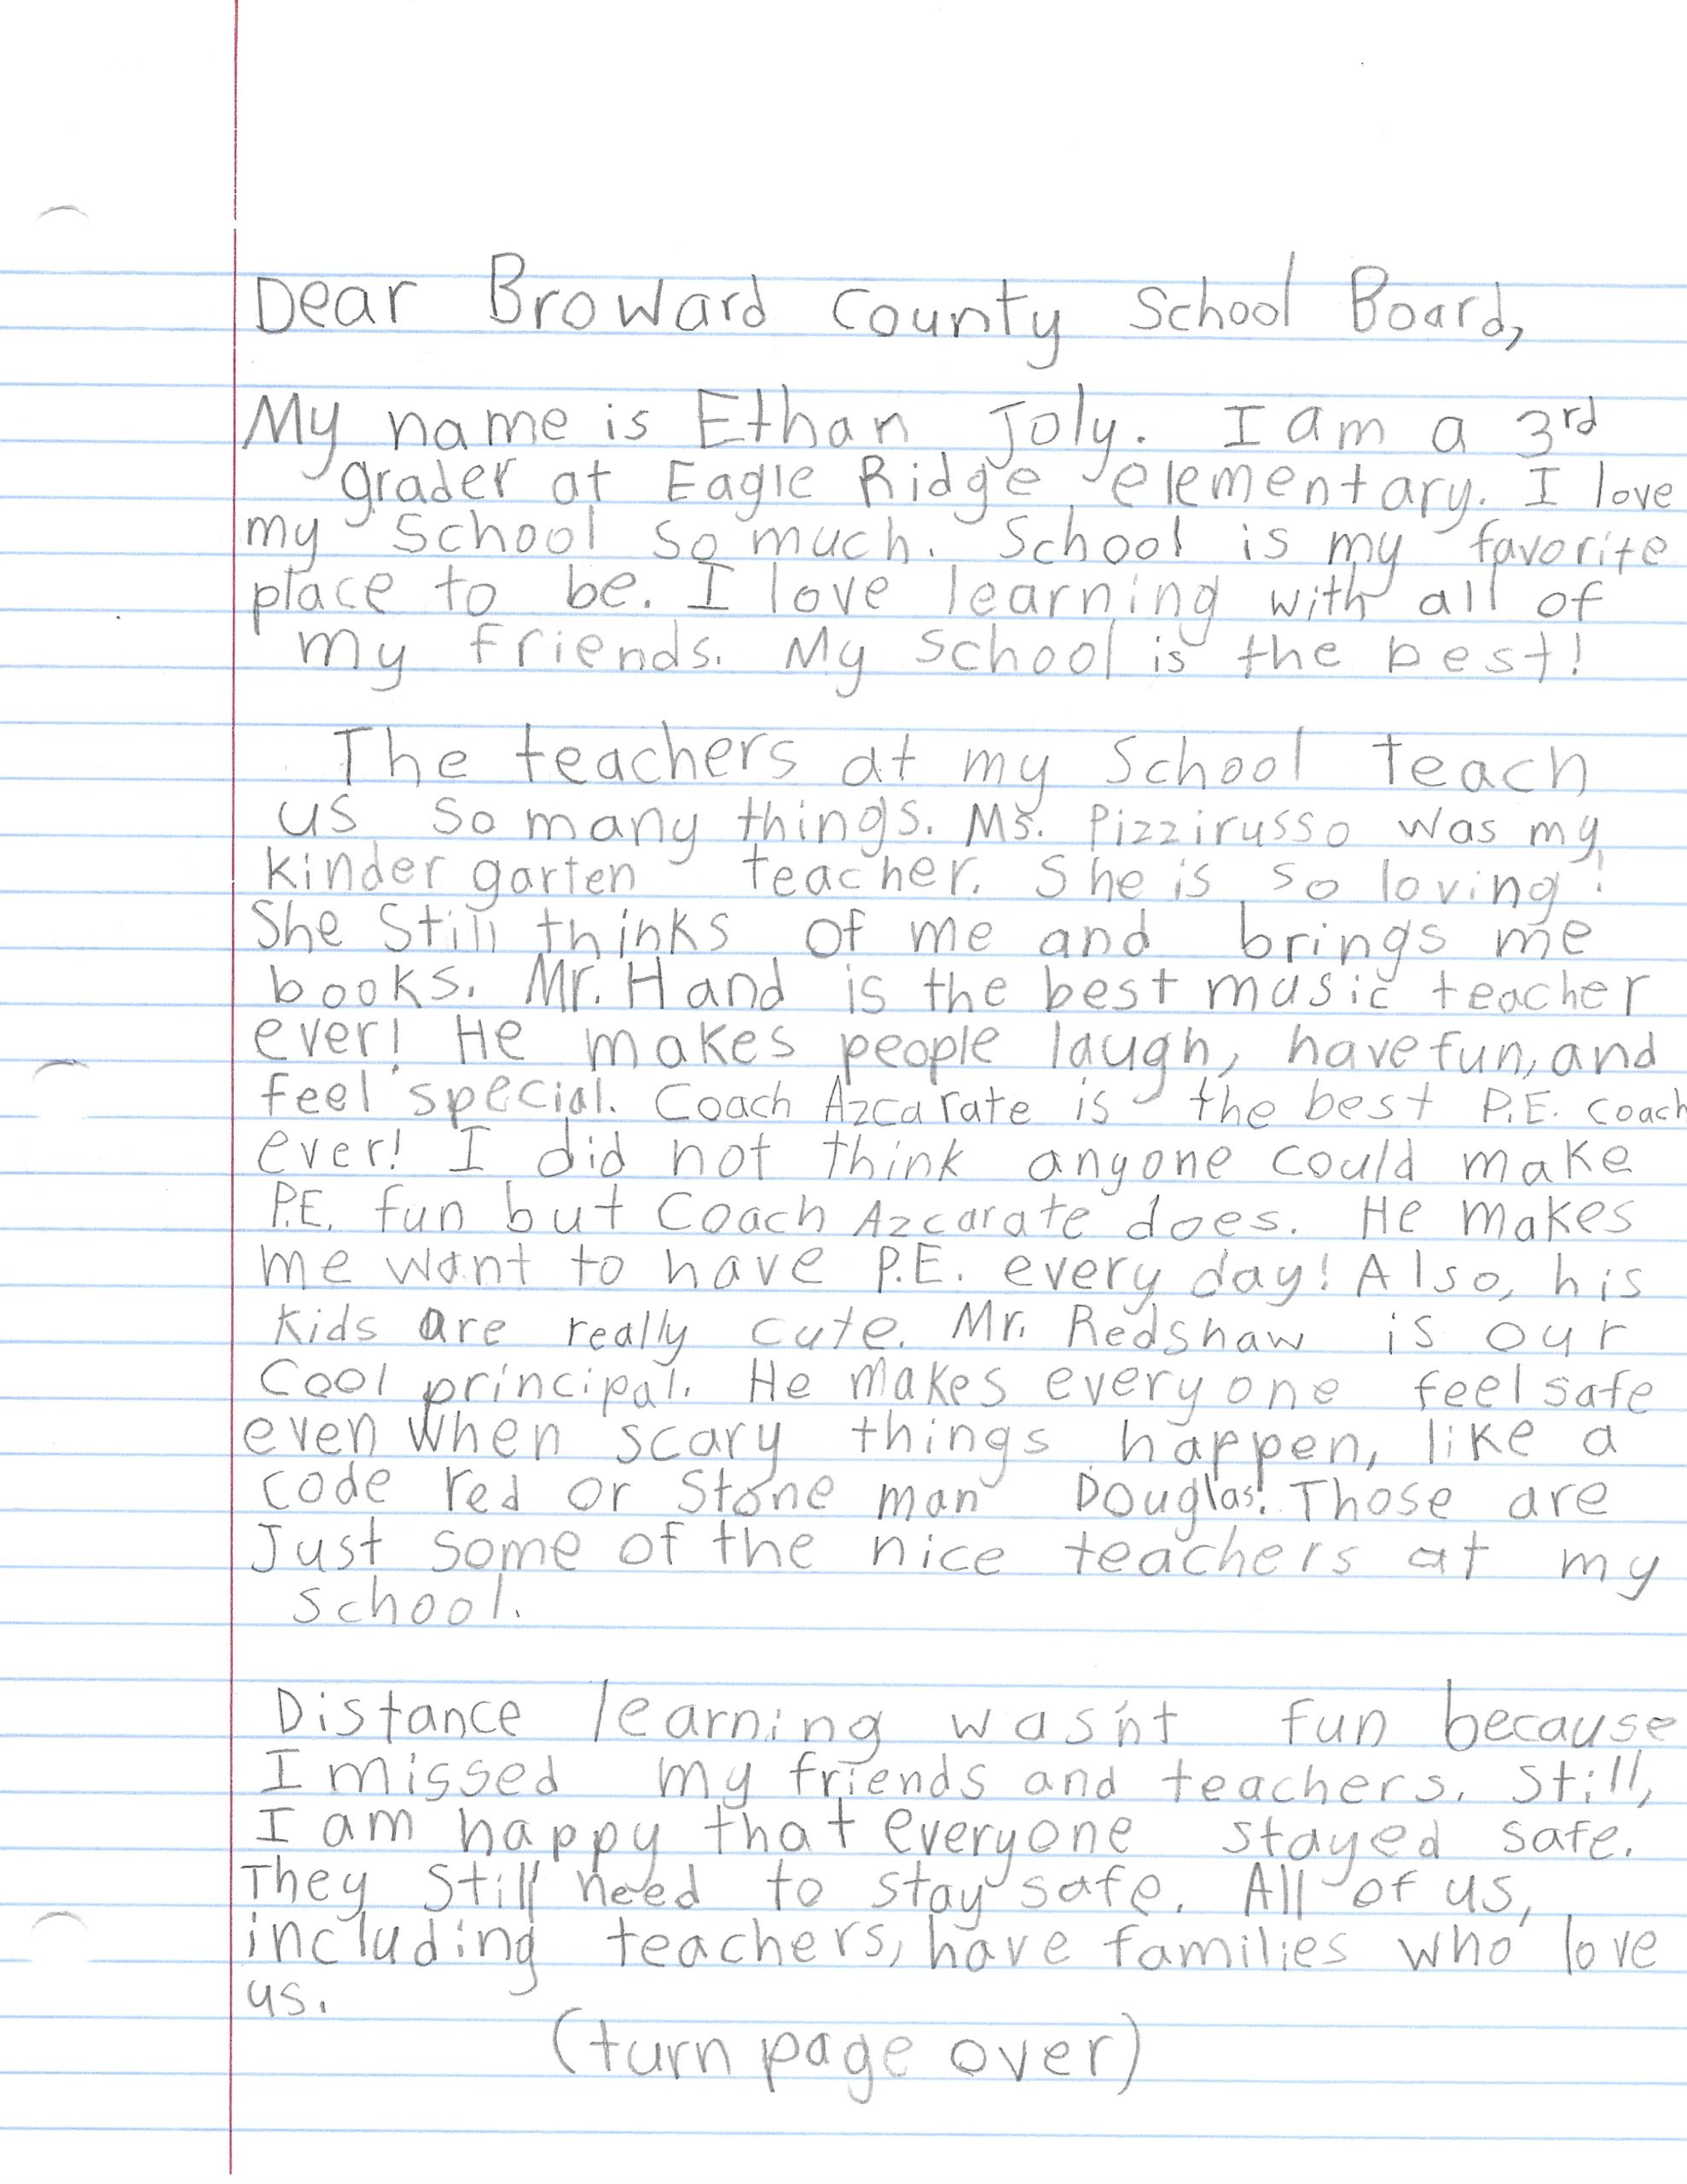 Dear Broward County School Board,
My name is Ethan Joly. I am a 3rd
grader at Eagle Ridge elementary. I love
my school so much. School is my favorite
place to be. I love learning with all of
my friends. My school is the best!
The teachers at my school teach
us so many things. Ms. Pizzirusso was my
kinder garten teacher. She is so loving!
She still thinks of me and brings me
books. Mr. Hand is the best music teacher
ever! He makes people laugh, have fun, and
feel special. Coach Azcarate is the best P.E. coach
ever! I did not think anyone could make
P.E. fun but Coach Azcarate does. He makes
me want to have P.E. every day! Also, his
kids are really cute. Mr. Redshaw is our
cool principal. He makes everyone feel safe
even when scary things happen, like a
code red or Stone man Douglas. Those are
Just some of the nice teachers at my
school.
Distance learning wasn't fun because
I missed my friends and teachers. Still,
I am happy that everyone stayed safe.
They still need to stay safe. All of us,
including teachers, have families who love
us.
(turn page over)